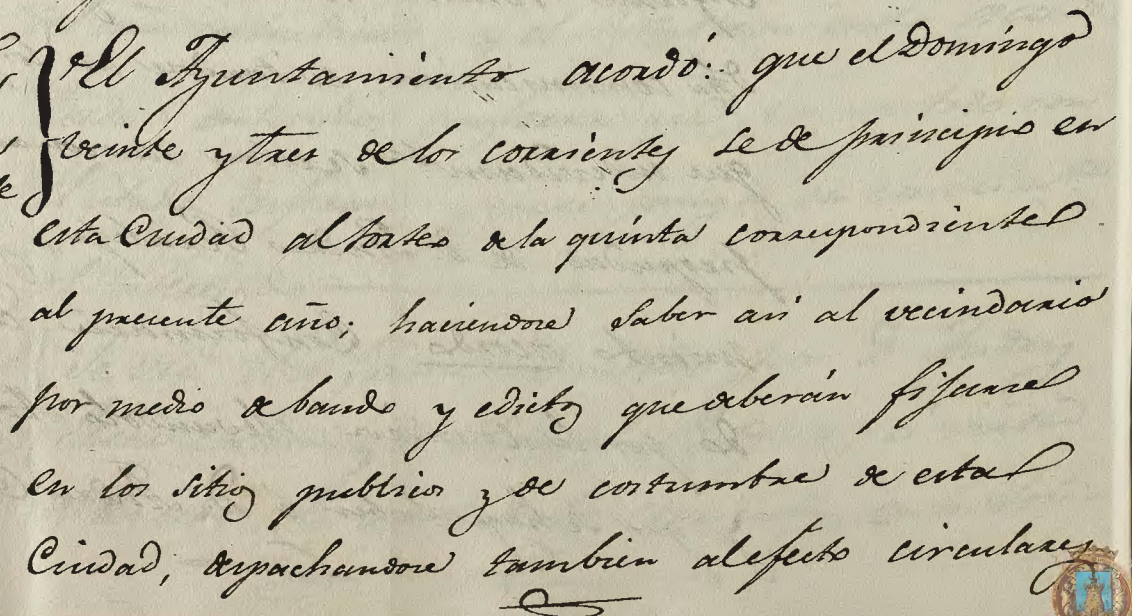 El Ayuntamiento acordó: que el Domingo
veinte y tres de los corrientes se de principio en
esta Ciudad al sorteo de la quinta correspondiente
al presente año; haciendose saber asi al vecindario
por medio de bando y edictos que deberán fijarse
en los sitios publicos y de costumbre de esta
Ciudad, despachandose tambien al efecto circulares